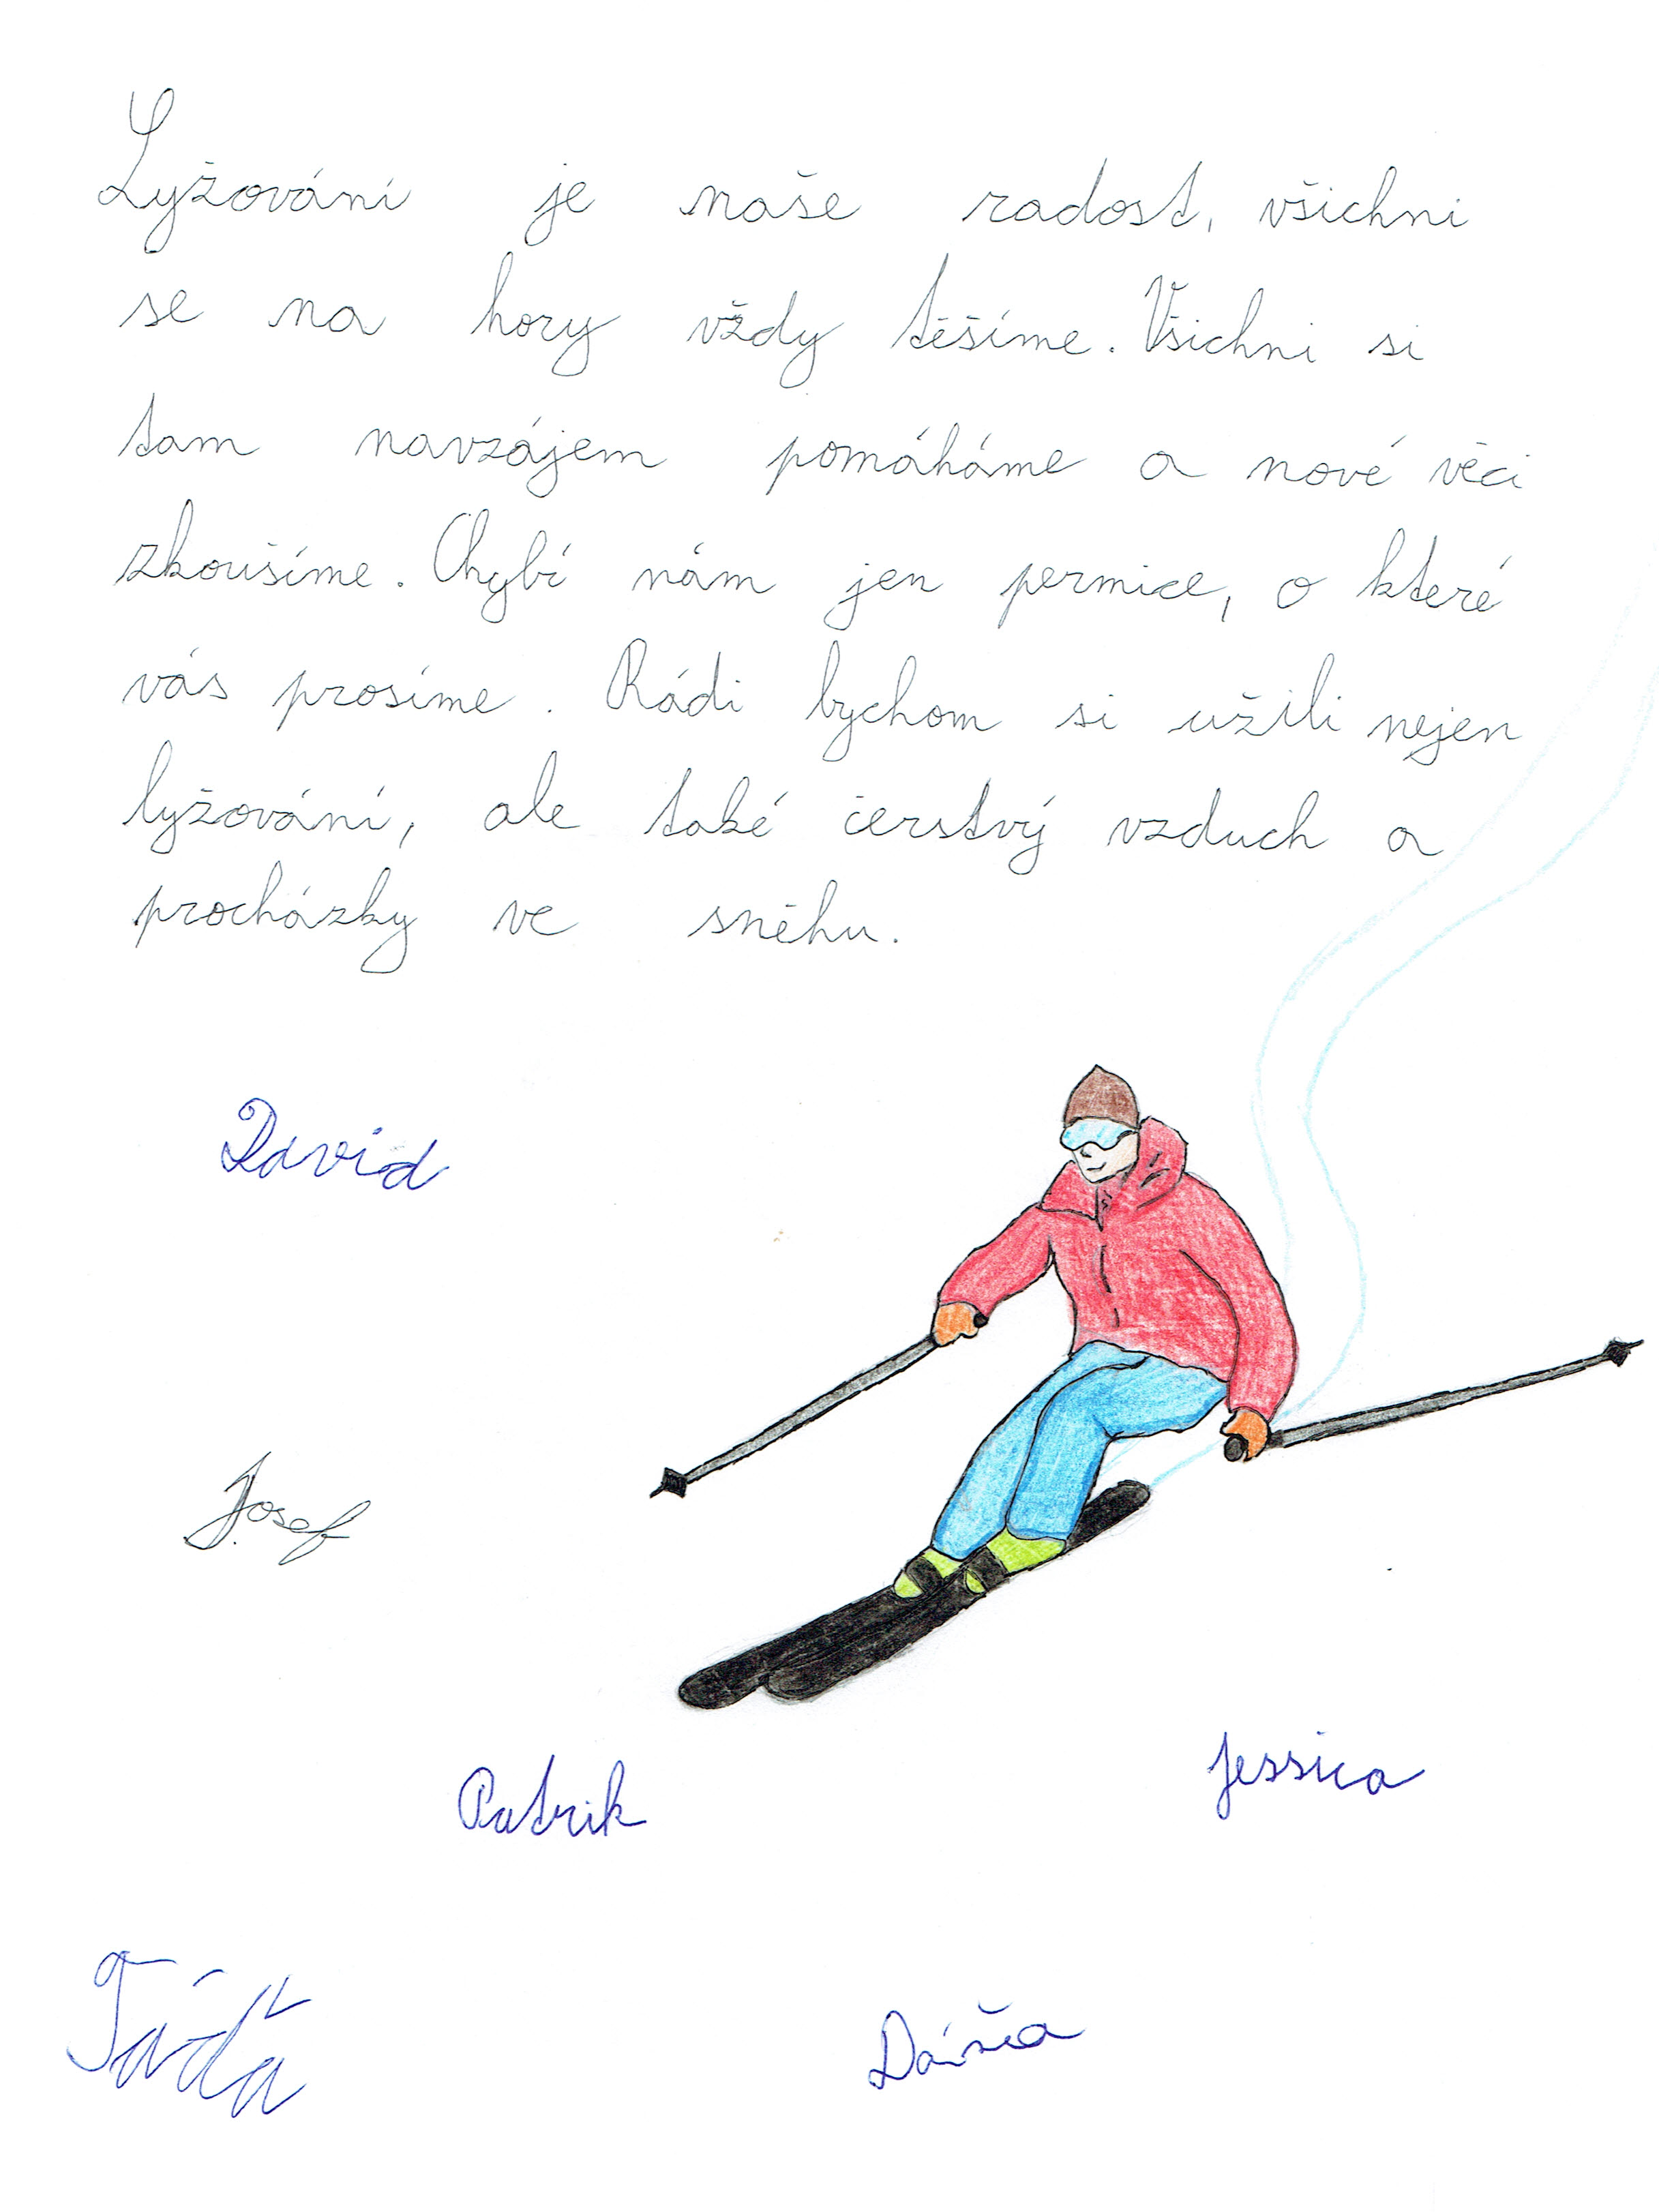 Lyžování je naše radost, všichni
se na hory vždy těšíme. Všichni si
tam navzájem pomáháme a nové věci
zkoušíme. Chybí nám jen permice, o které
vás prosíme. Rádi bychom si užili nejen
lyžování, ale také čerstvý vzduch a
procházky ve sněhu.
David
Josef
Patrik
Jessica